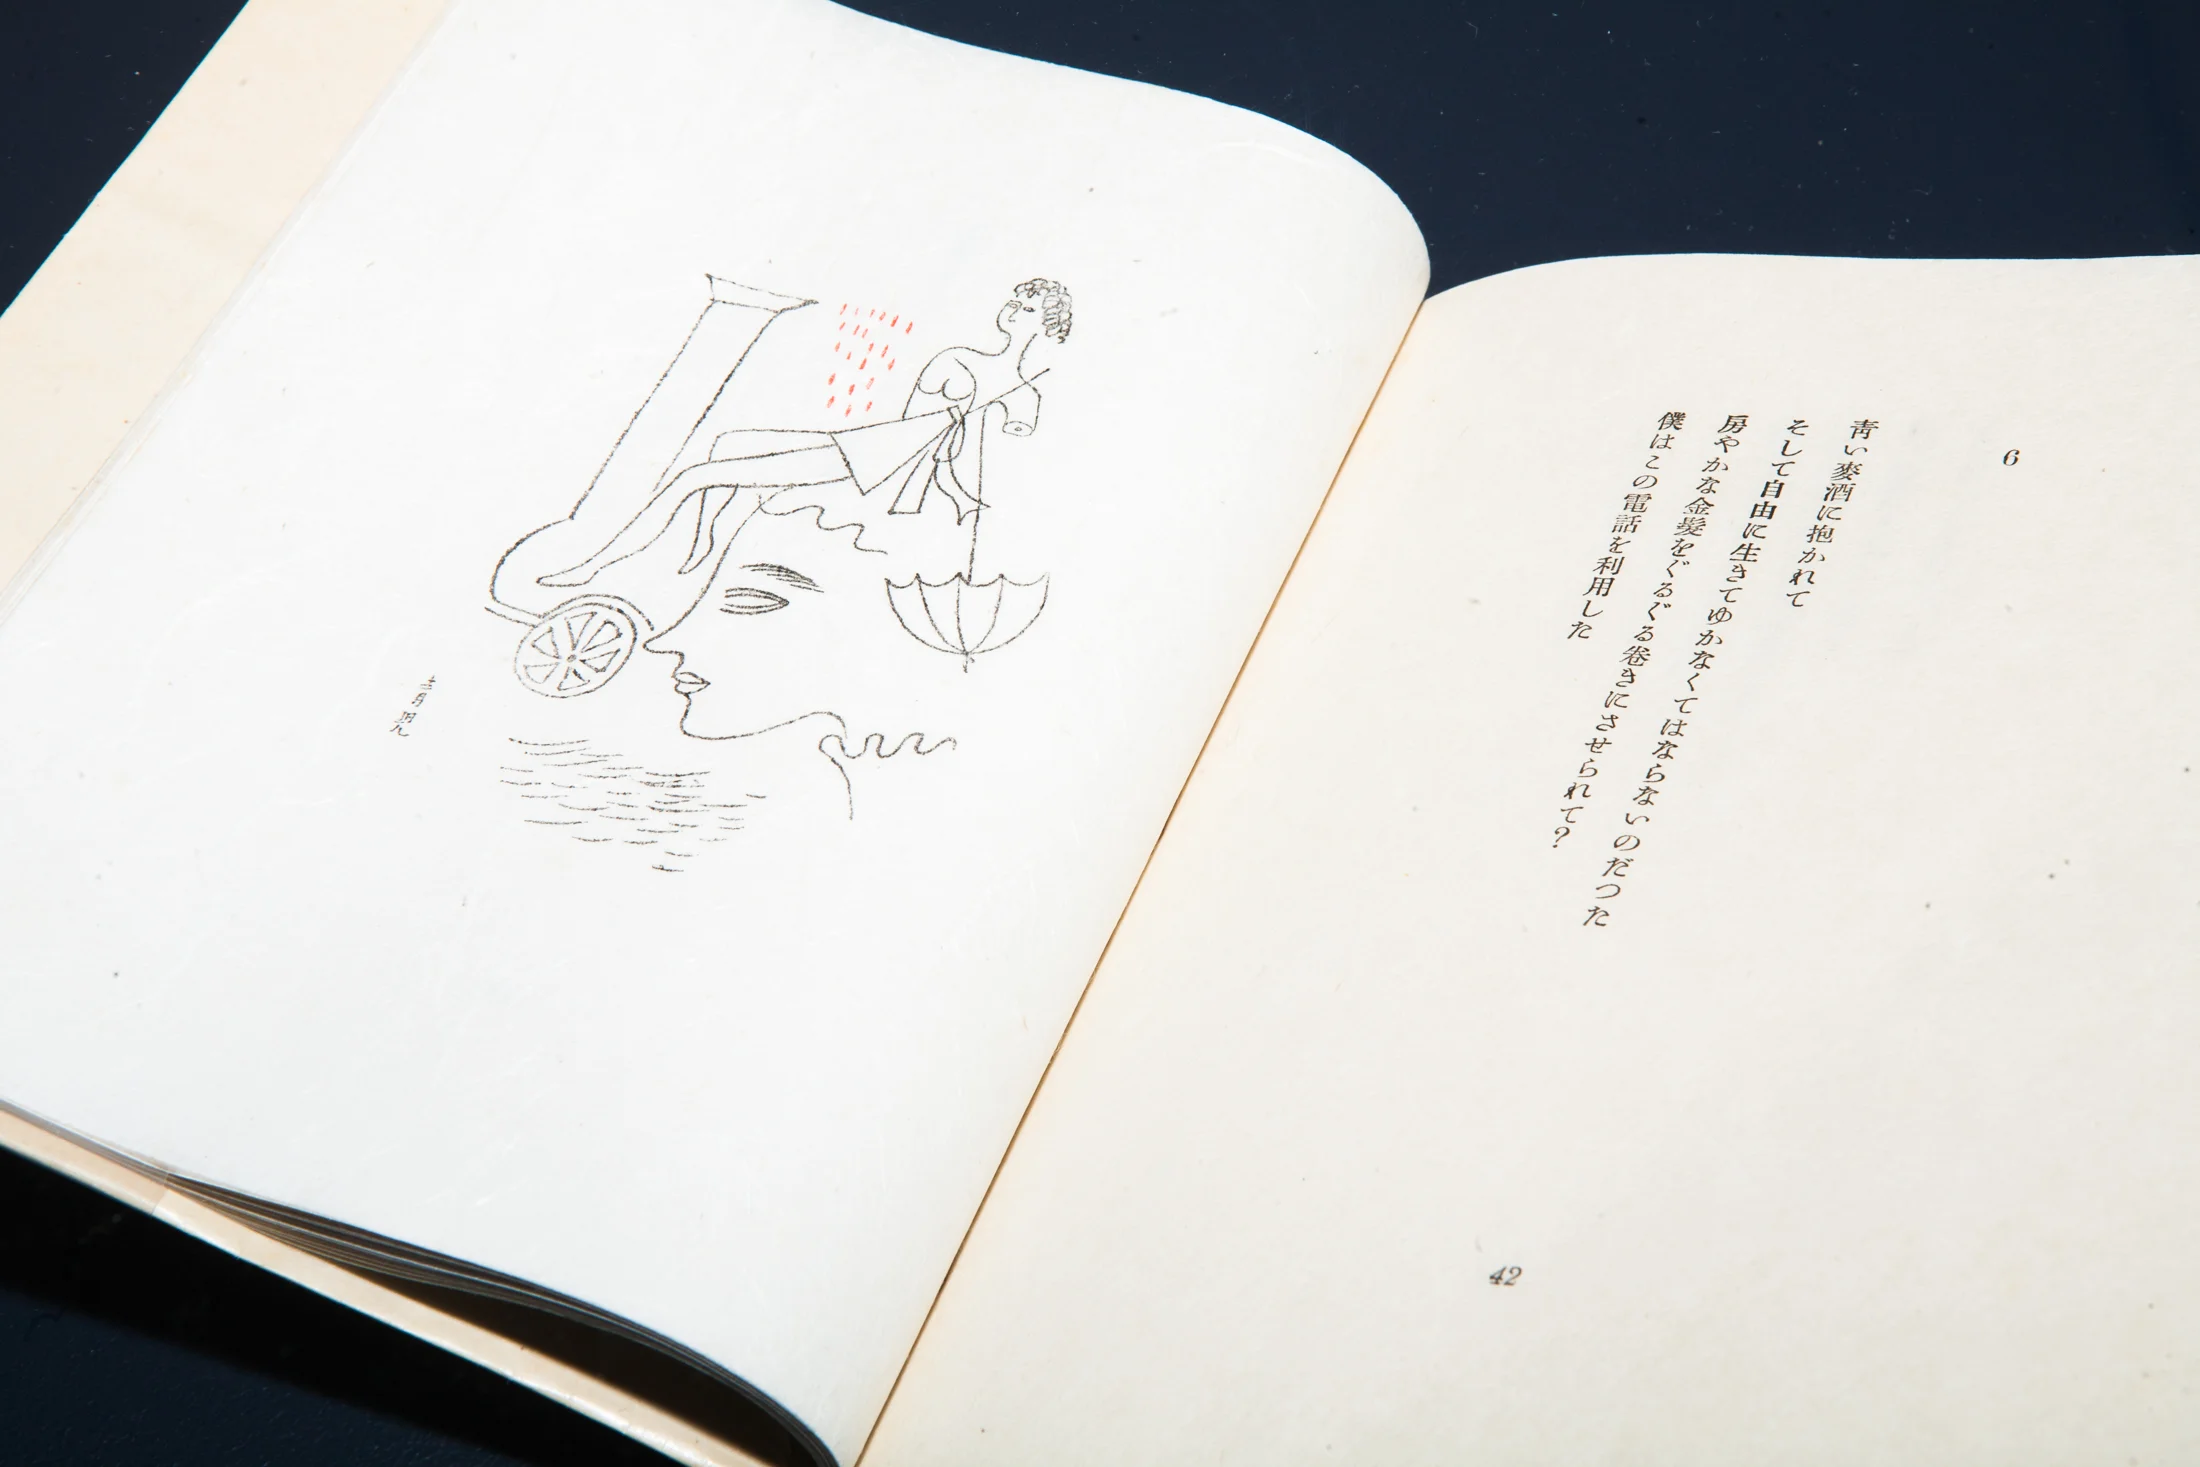 6
靑い麥酒に抱かれて
そして自由に生きてゆかなくてはならないのだつた
房やかな金髮をぐるぐる卷きにさせられて?
僕はこの電話を利用した
42
青児